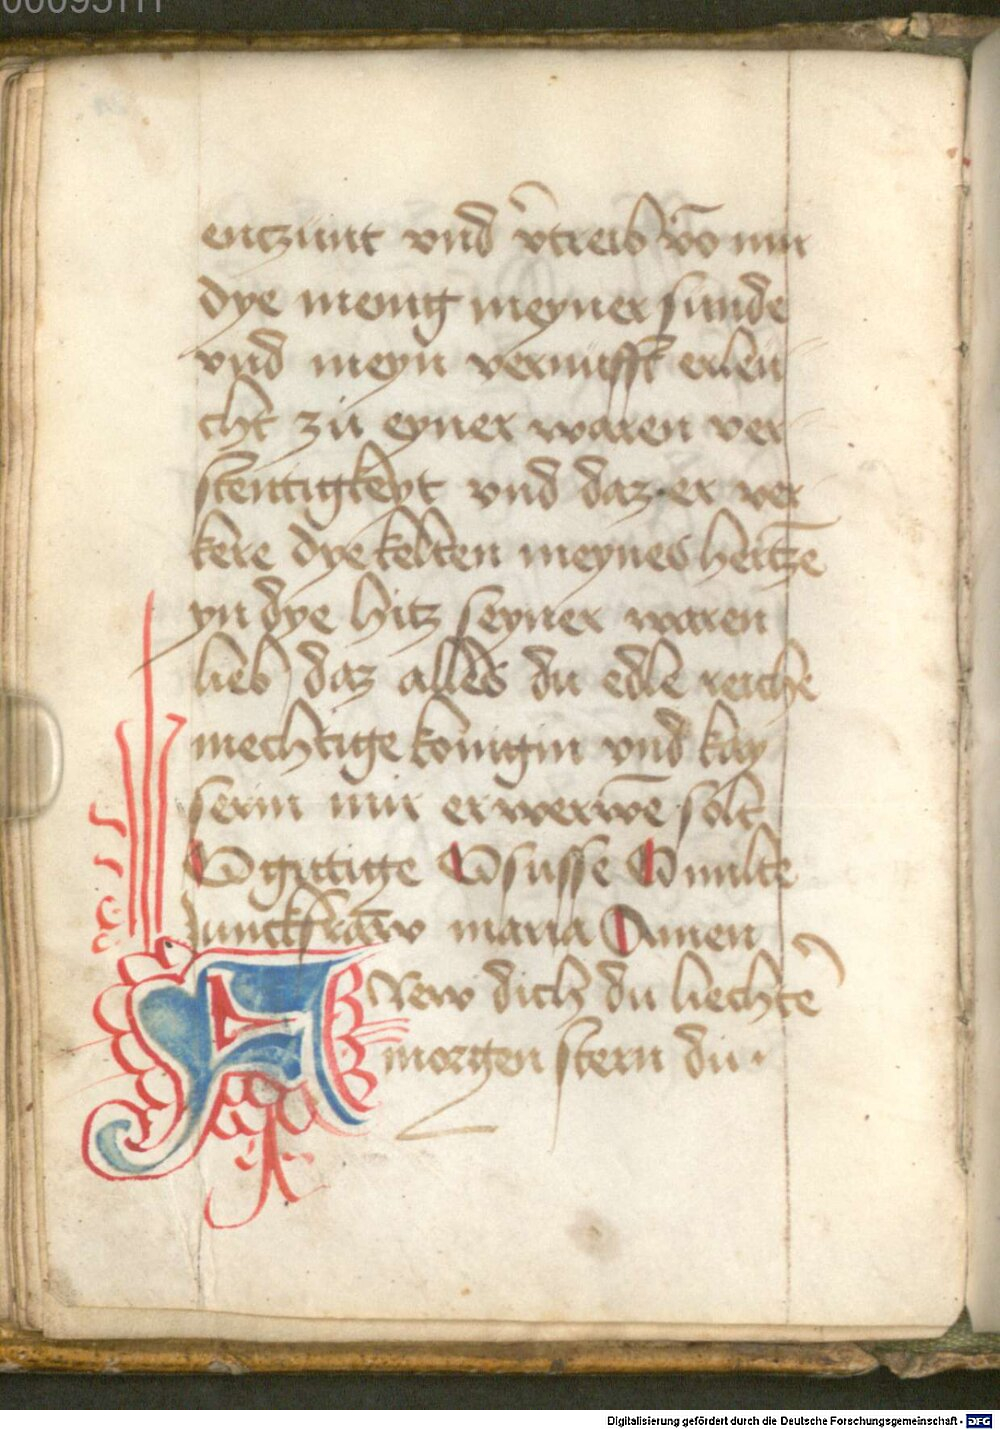 entzünt vnd v̂treib vō mir
dye menig meyner sunde
vnd meyn vernufft erleü
cht zü eyner waren ver
stentigkeyt vnd daz er ver
kere dye kelten meynes hertzē
yn dye hitz seyner waren
lieb daz alles du edle reiche
mechtige königin vnd kay
serin mir erwerwē solt
O gutige O susse O milte
Junckfraw maria Amen
FRew dich du liechtē
morgen stern du
Digitalisierung gefördert durch die Deutsche Forschungsgemeinschaft - DFG